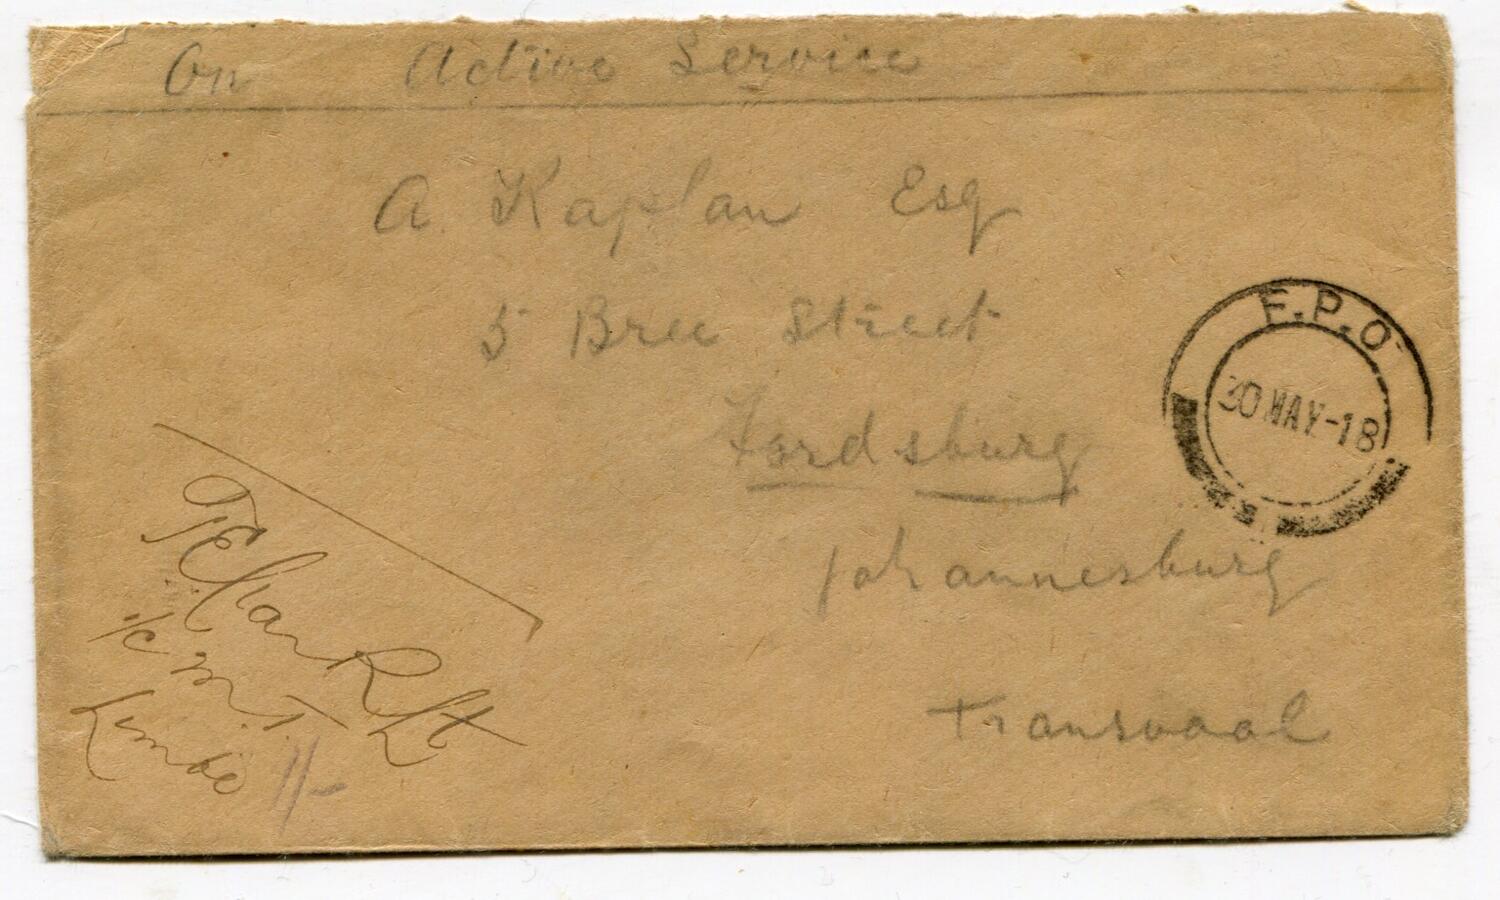 On Active Service
A. Kaplan Esq
5 Bree Street
Fordsburg
Johannesburg
Transvaal
F.P.O
30 MAY-18
Lt
M.T.
Limbe
1/-